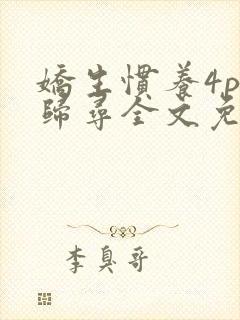 嬌生慣養4p
歸尋全文免
李臭哥